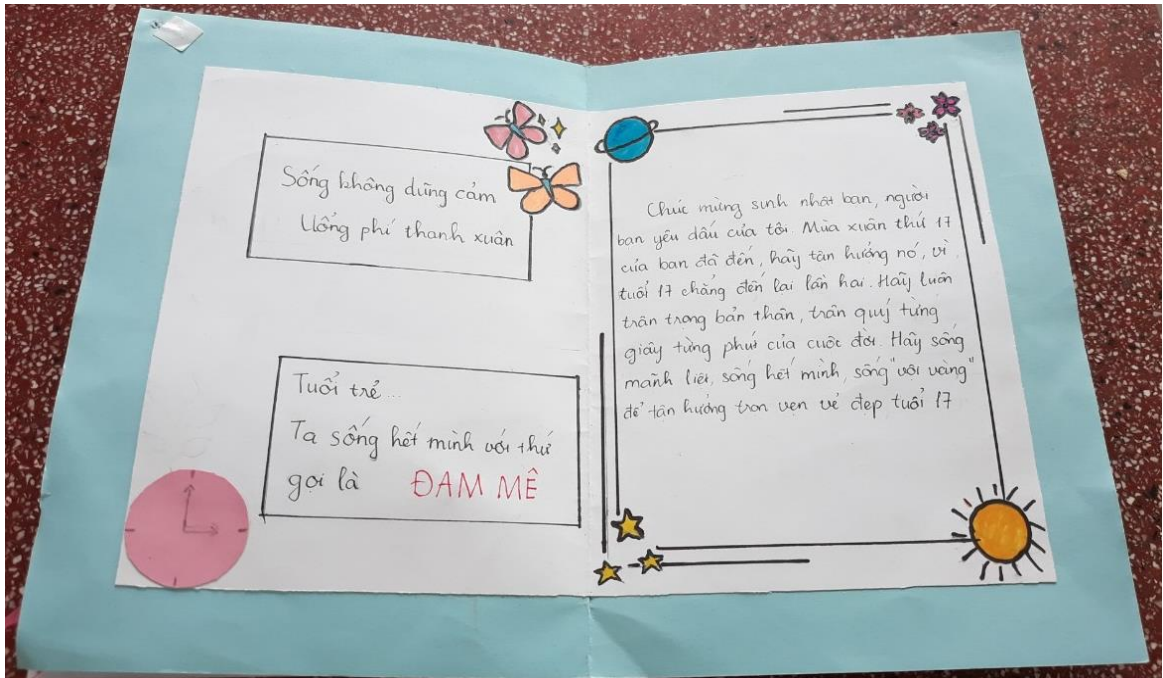 Sống không dũng cảm
Uổng phí thanh xuân
Tuổi trẻ...
Ta sống hết mình với thứ
gọi là ĐAM MÊ
Chúc mừng sinh nhật bạn, người
bạn yêu dấu của tôi. Mùa xuân thứ 17
của bạn đã đến, hãy tận hưởng nó, vì
tuổi 17 chẳng đến lại lần hai. Hãy luôn
trân trọng bản thân, trân quý từng
giây từng phút của cuộc đời. Hãy sống
mãnh liệt, sống hết mình, sống "vội vàng"
để tận hưởng trọn vẹn vẻ đẹp tuổi 17